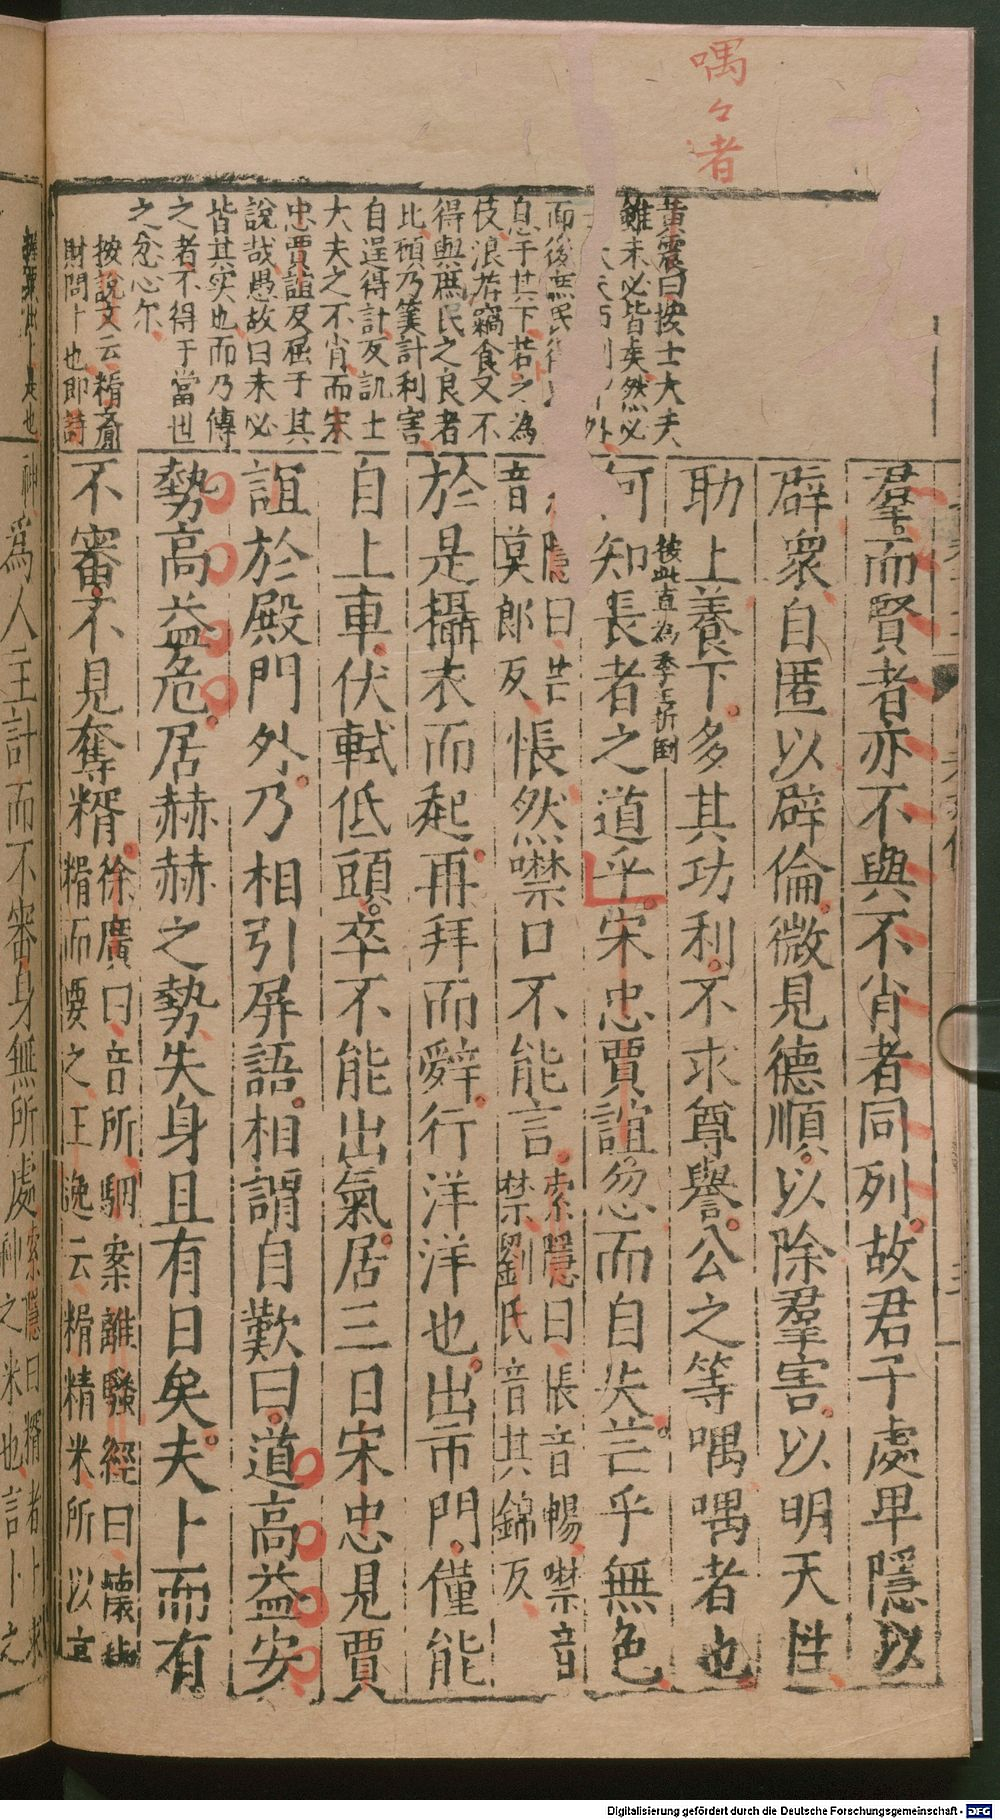 喁々者
黃震曰按士大夫
雖未必皆矣然必
外
而後庶民
息于其下若之為
伎浪莽竊食又不
得與庶民之良者
比顧乃筭計利害
自逞得計反訊士
大夫之不肖而宋
忠賈誼反屈于其
說哉愚故曰未必
皆其实也而乃傳
之者不得于當世
之忿心尔
按說文云糈齎
財問卜也即詩
羣而賢者亦不與不肖者同列故君子處卑隱以
辟眾自匿以辟倫微見德順以除羣害以明天性
助上養下多其功利不求尊譽公之等喁喁者也
彼此直為季主折倒
何知長者之道乎宋忠賈誼忽而自失芒乎無色
隱曰芒
音莫郎反
悵然噤口不能言
索隱曰悵音暢噤音
禁劉氏音其錦反
於是攝衣而起再拜而辭行洋洋也出市門僅能
自上車伏軾低頭卒不能出氣居三日宋忠見賈
誼於殿門外乃相引屏語相謂自歎曰道高益安
勢高益危居赫赫之勢失身且有日矣夫卜而有
不審不見奪糈
徐廣曰音所駰案離騷經曰懷椒
糈而要之王逸云糈精米所以享
神為人主計而不審身無所處
索隱曰糈者卜求
神之米也言卜之
Digitalisierung gefördert durch die Deutsche Forschungsgemeinschaft - DFG